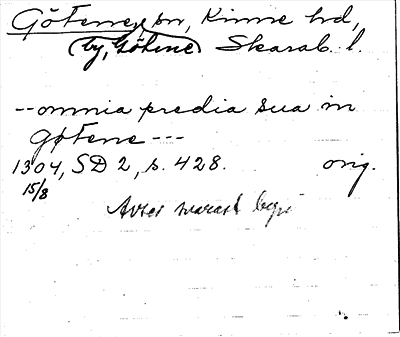 Götene, sn, Kinne hd,
by, Götene Skarab. l.
--omnia predia sua in
gøtene---
1304, SD 2, s. 428. orig.
15/8
Avser snarast byn